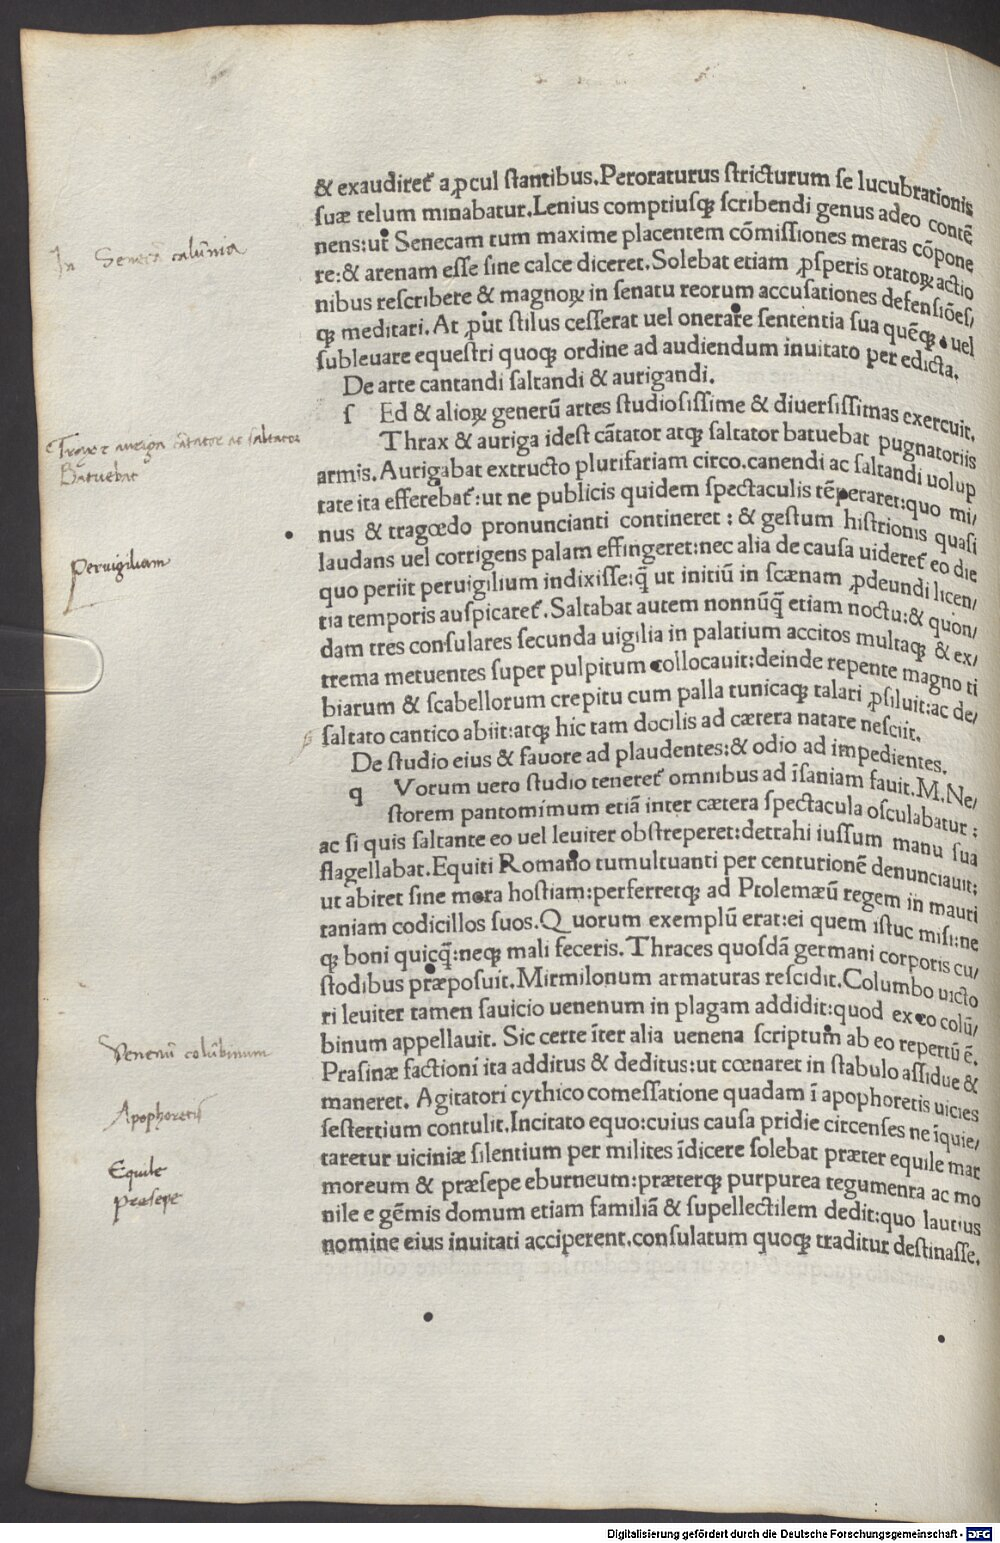 & exaudiret̃ a ꝓcul stantibus. Peroraturus stricturum se lucubrationis
suæ telum minabatur. Lenius comptiusqꝫ scribendi genus adeo contẽ
nens: ut Senecam tum maxime placentem cõmissiones meras cõpone
re: & arenam esse sine calce diceret. Solebat etiam ꝓsperis oratoꝝ actio
nibus rescribere & magnoꝝ in senatu reorum accusationes defensiões/
qꝫ meditari. At ꝓut stilus cesserat uel onerare sententia sua quẽqꝫ. uel
subleuare equestri quoqꝫ ordine ad audiendum inuitato per edicta.
De arte cantandi saltandi & aurigandi.
s Ed & alioꝝ generũ artes studiosissime & diuersissimas exercuit.
Thrax & auriga idest cãtator atqꝫ saltator batuebat pugnatoriis
armis. Aurigabat extructo plurifariam circo. canendi ac saltandi uolup
tate ita efferebat̃: ut ne publicis quidem spectaculis tẽperaret: quo mi/
nus & tragœdo pronuncianti contineret: & gestum histrionis quasi
laudans uel corrigens palam effingeret: nec alia de causa uideret̃ eo die
quo periit peruigilium indixisse: q̃ ut initiũ in scænam ꝓdeundi licen/
tia temporis auspicaret̃. Saltabat autem nonnũq̃ etiam noctu: & quon/
dam tres consulares secunda uigilia in palatium accitos multaqꝫ & ex/
trema metuentes super pulpitum collocauit: deinde repente magno ti
biarum & scabellorum crepitu cum palla tunicaqꝫ talari ꝓsiluit: ac de/
saltato cantico abiit: atqꝫ hic tam docilis ad cætera natare nesciit.
De studio eius & fauore ad plaudentes: & odio ad impedientes.
q Vorum uero studio teneret̃ omnibus ad ĩsaniam fauit. M. Ne/
storem pantomimum etiã inter cætera spectacula osculabatur:
ac si quis saltante eo uel leuiter obstreperet: detrahi iussum manu sua
flagellabat. Equiti Romano tumultuanti per centurionẽ denunciauit:
ut abiret sine mora hostiam: perferretqꝫ ad Ptolemæũ regem in mauri
taniam codicillos suos. Quorum exemplũ erat: ei quem istuc misi: ne
qꝫ boni quicq̃: neqꝫ mali feceris. Thraces quosdã germani corporis cu/
stodibus præposuit. Mirmilonum armaturas rescidit. Columbo uicto
ri leuiter tamen sauicio uenenum in plagam addidit: quod ex eo colũ/
binum appellauit. Sic certe ĩter alia uenena scriptum ab eo repertũ ẽ.
Prasinæ factioni ita additus & deditus: ut cœnaret in stabulo assidue &
maneret. Agitatori cythico comessatione quadam ĩ apophoretis uicies
sestertium contulit. Incitato equo: cuius causa pridie circenses ne ĩquie/
taretur uiciniæ silentium per milites ĩdicere solebat præter equile mar
moreum & præsepe eburneum: præterqꝫ purpurea tegumenta ac mo
nile e gẽmis domum etiam familiã & supellectilem dedit: quo lautius
nomine eius inuitati acciperent. consulatum quoqꝫ traditur destinasse.
In Senecã calũnia
auriga cãtator ac saltator
Batuebat
Peruigilium
Venenũ colũbinum
Apophoretis
Equile
Præsepe
Digitalisierung gefördert durch die Deutsche Forschungsgemeinschaft - DFG